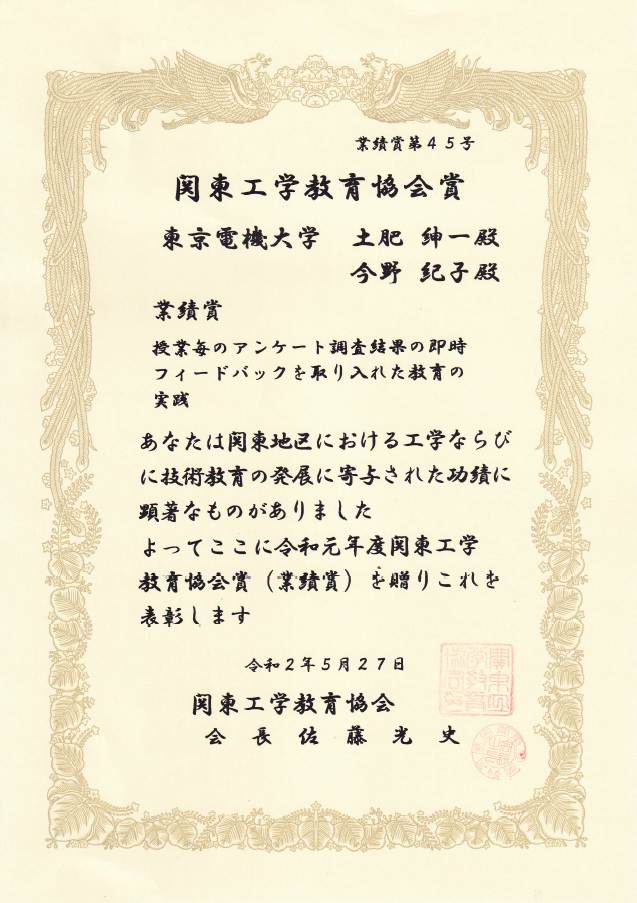 業績賞第４５号
関東工学教育協会賞
東京電機大学　土肥　紳一殿
今野　紀子殿
業績賞
授業毎のアンケート調査結果の即時
フィードバックを取り入れた教育の
実践
あなたは関東地区における工学ならび
に技術教育の発展に寄与された功績に
顕著なものがありました
よってここに令和元年度関東工学
教育協会賞（業績賞）を贈りこれを
表彰します
令和２年５月２７日
関東工学教育協会
会長佐藤光史